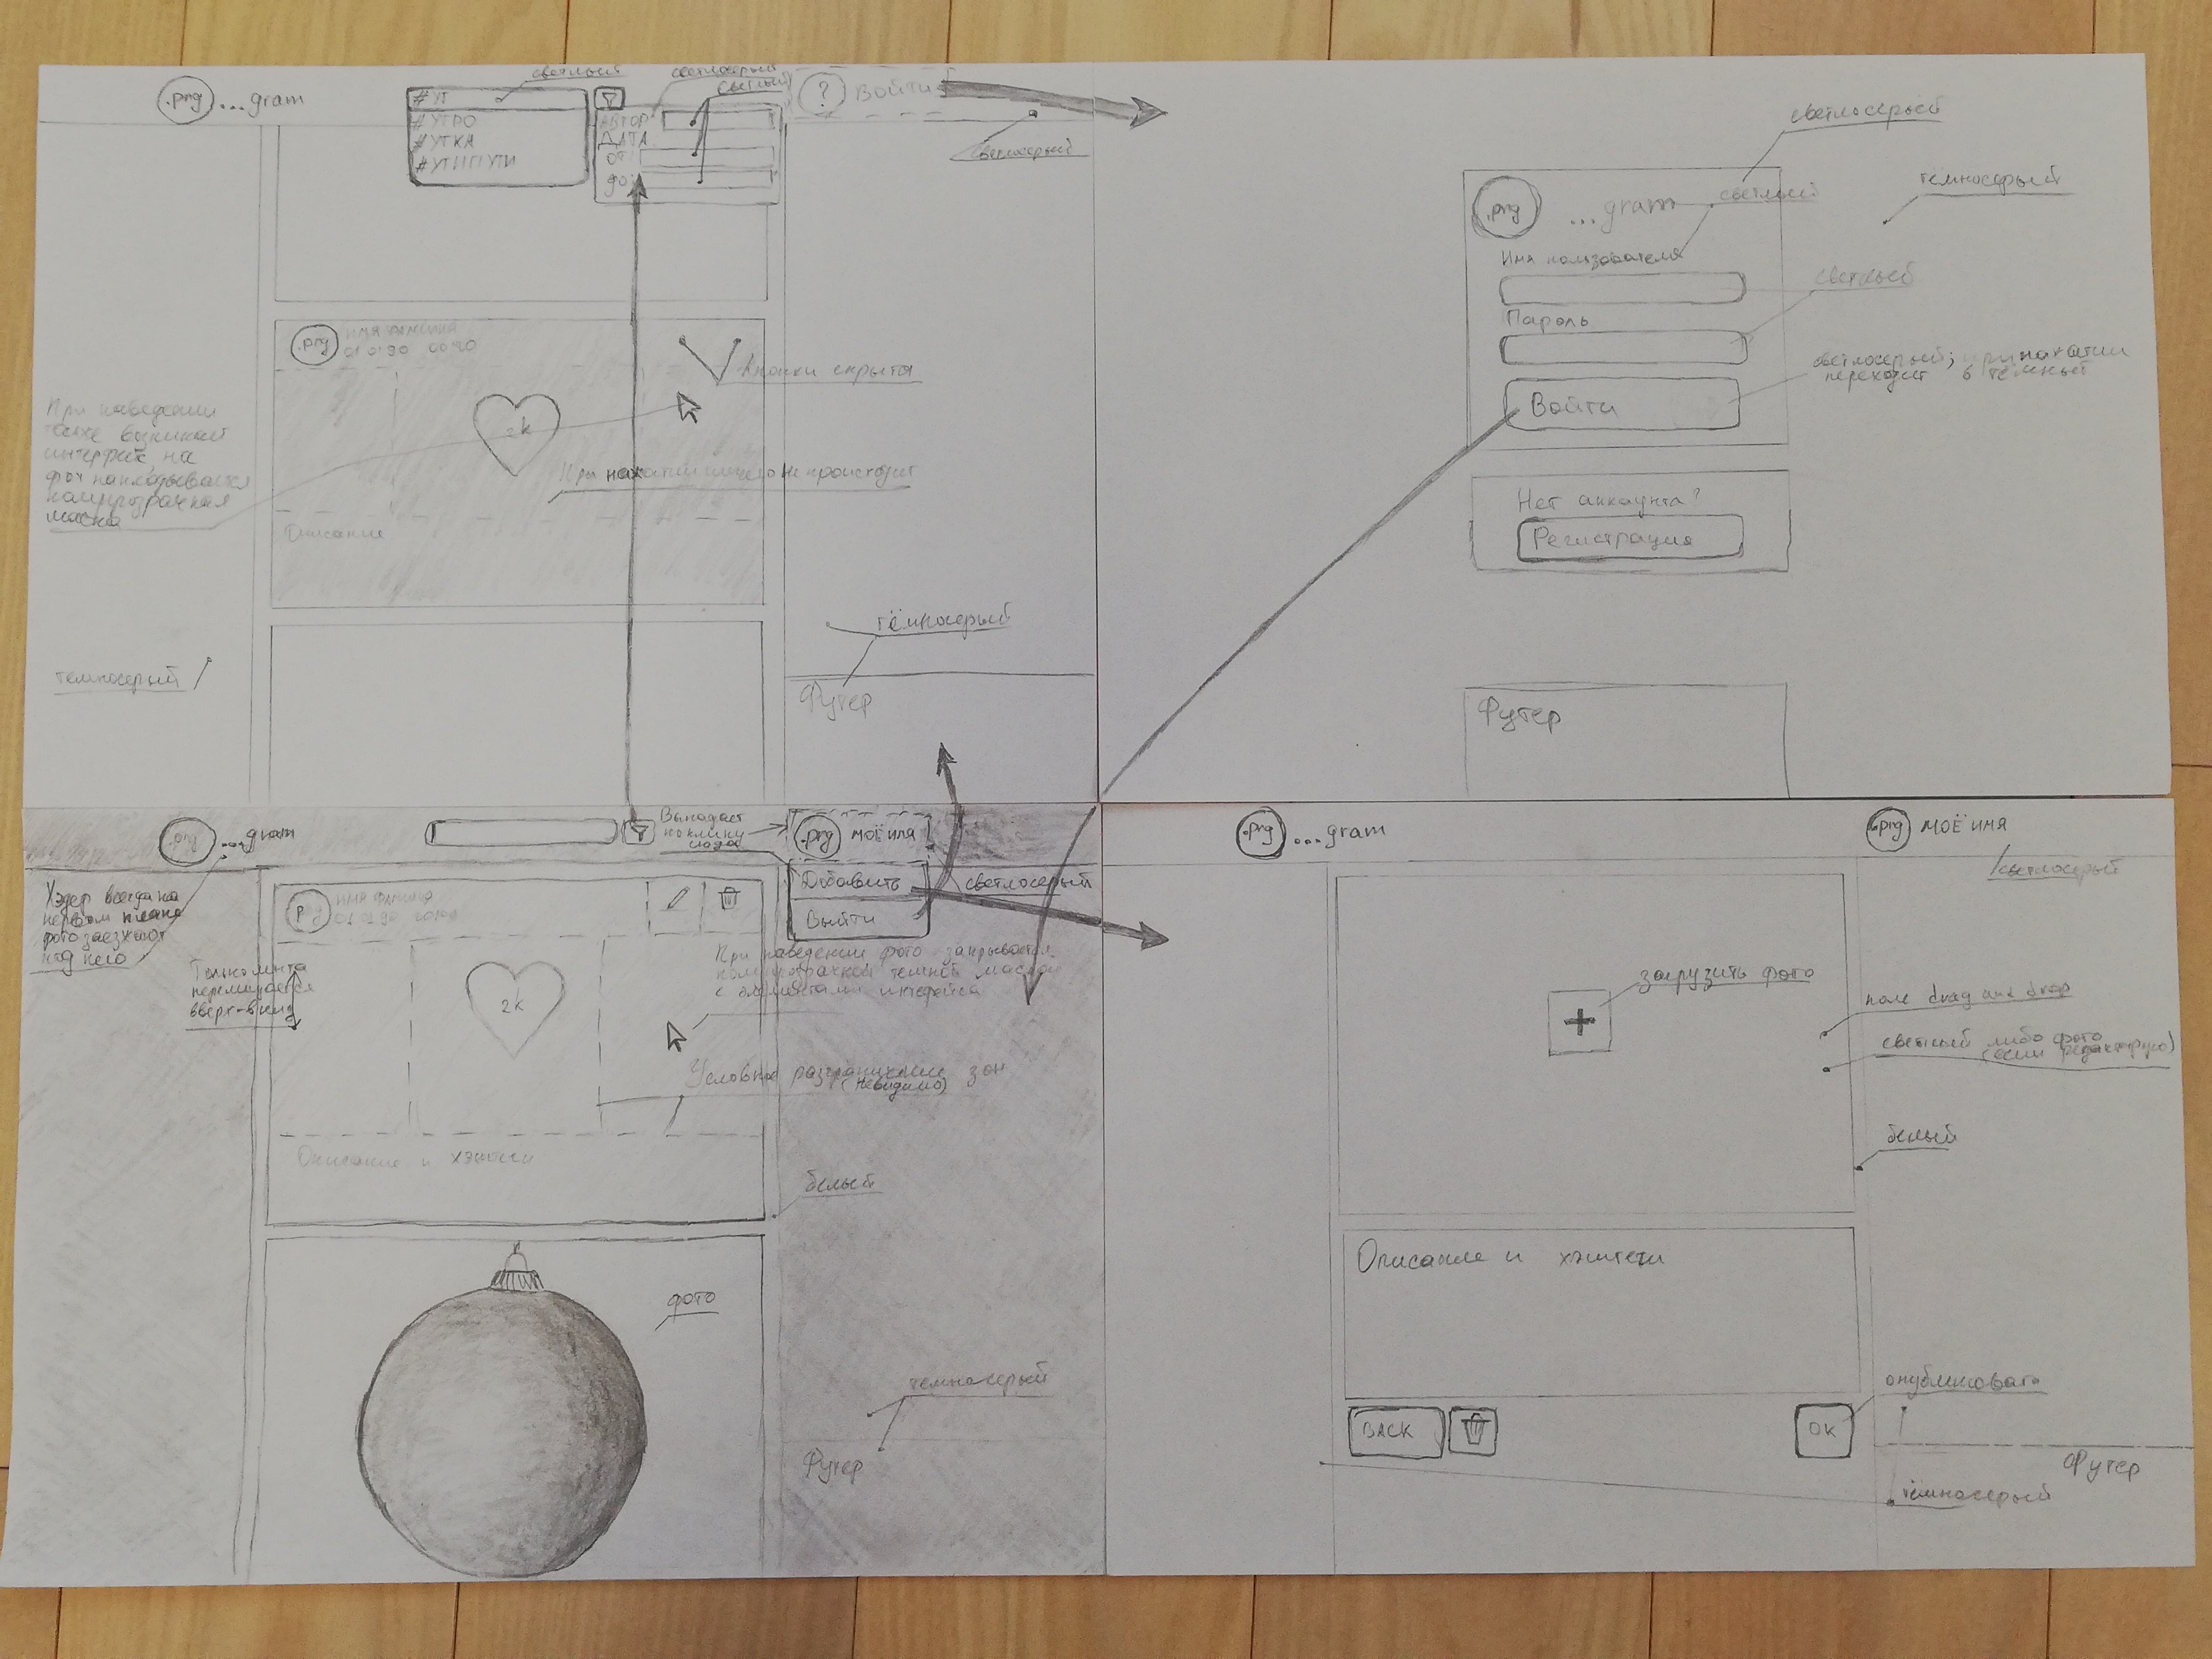 .png ...gram
светлый
#УТ
#УТРО
#УТКА
#УТИПУТИ
светлосерый
светлый
АВТОР
ДАТА
ОТ:
ДО:
? Войти
светлосерый
.png ИМЯ ФАМИЛИЯ
01 01 90 00:90
Кнопки скрыты
2k
При нажатии ничего не происходит
Описание
При наведении
также возникает
интерфейс на
фото накладывается
полупрозрачная
маска
темносерый
тёмносерый
Футер
светлосерый
темносерый
.png ...gram
светлый
Имя пользователя
светлый
Пароль
светлосерый; при нажатии
переходит в тёмный
Войти
Нет аккаунта?
Регистрация
Футер
.png ...gram
Выпадает
по клику
сюда
.png МОЁ ИМЯ
Добавить
Выйти
светлосерый
Хэдер всегда на
первом плане
фото заезжают
под него
Только лента
перемещается
вверх-вниз
ИМЯ ФАМИЛИЯ
01 01 90
2k
При наведении фото закрывается
полупрозрачной темной маской
с элементами интерфейса
Условное разграничение зон
(невидимо)
Описание и хэштеги
белый
фото
темносерый
Футер
.png ...gram
.png МОЁ ИМЯ
светлосерый
+
загрузить фото
поле drag and drop
светлый либо фото
(если редактирую)
белый
Описание и хэштеги
опубликовать
BACK
OK
Футер
тёмносерый